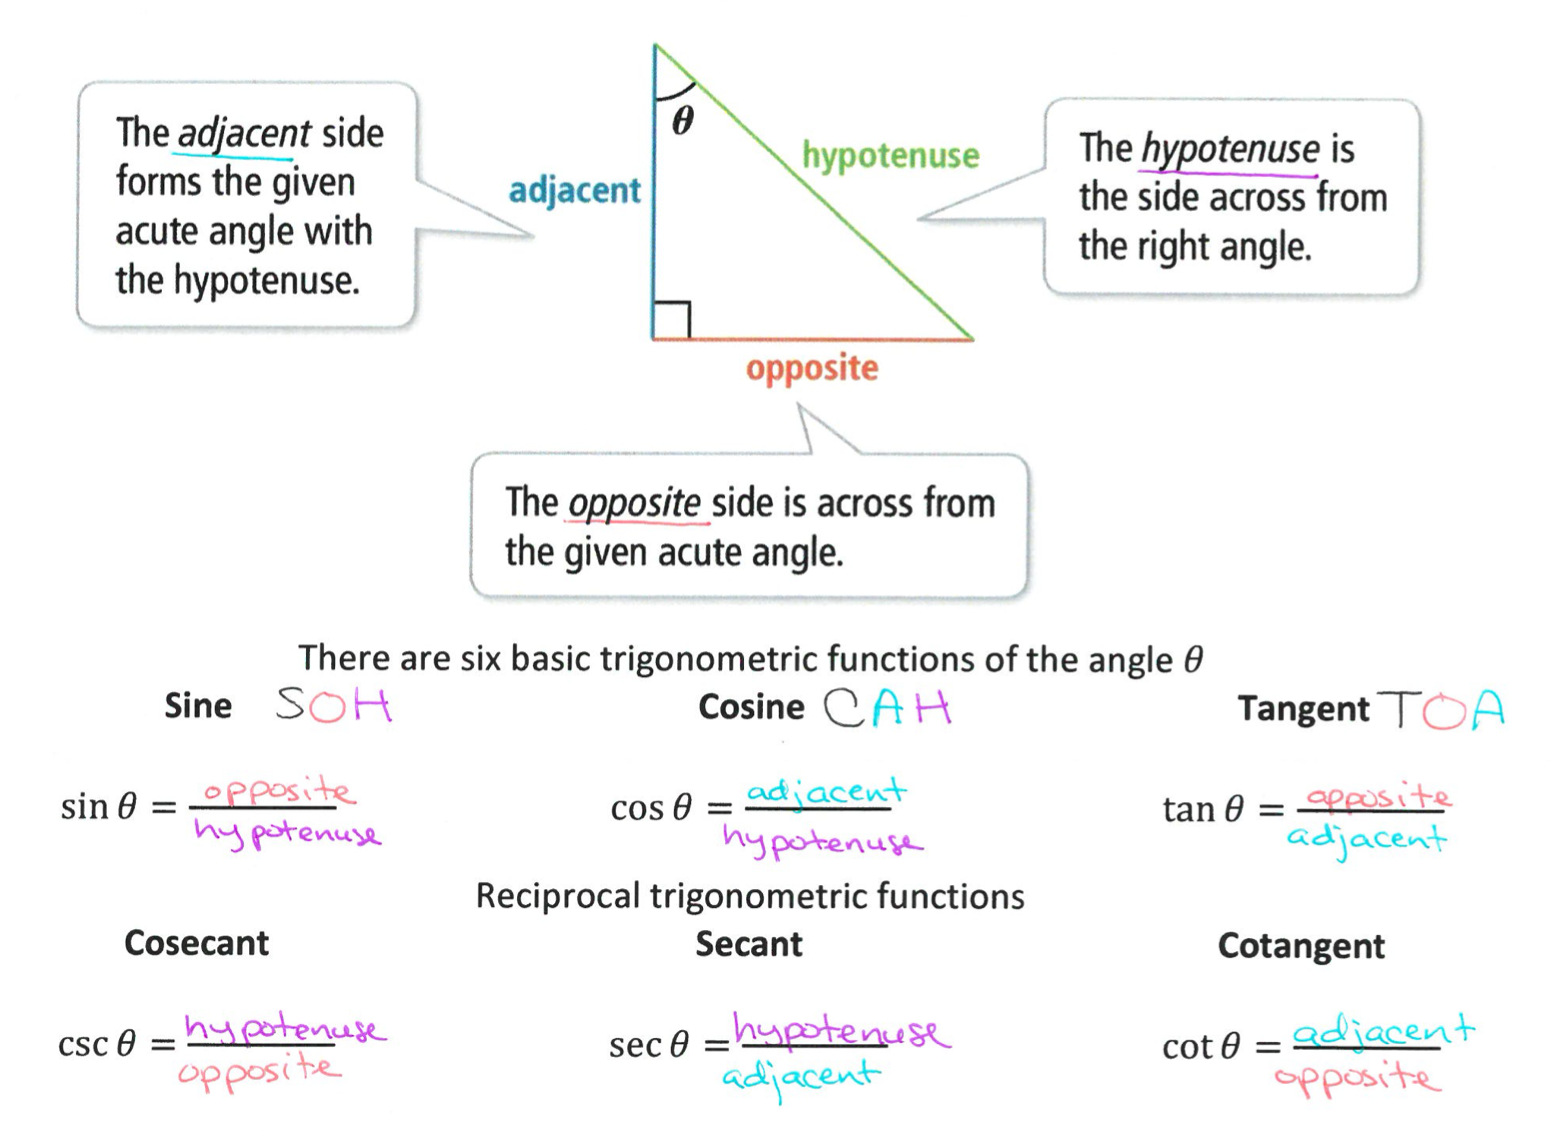 The adjacent side
forms the given
acute angle with
the hypotenuse.
θ
adjacent
hypotenuse
The hypotenuse is
the side across from
the right angle.
opposite
The opposite side is across from
the given acute angle.
There are six basic trigonometric functions of the angle θ
Sine SOH
Cosine CAH
Tangent TOA
sin θ = opposite / hypotenuse
cos θ = adjacent / hypotenuse
tan θ = opposite / adjacent
Reciprocal trigonometric functions
Cosecant
Secant
Cotangent
csc θ = hypotenuse / opposite
sec θ = hypotenuse / adjacent
cot θ = adjacent / opposite